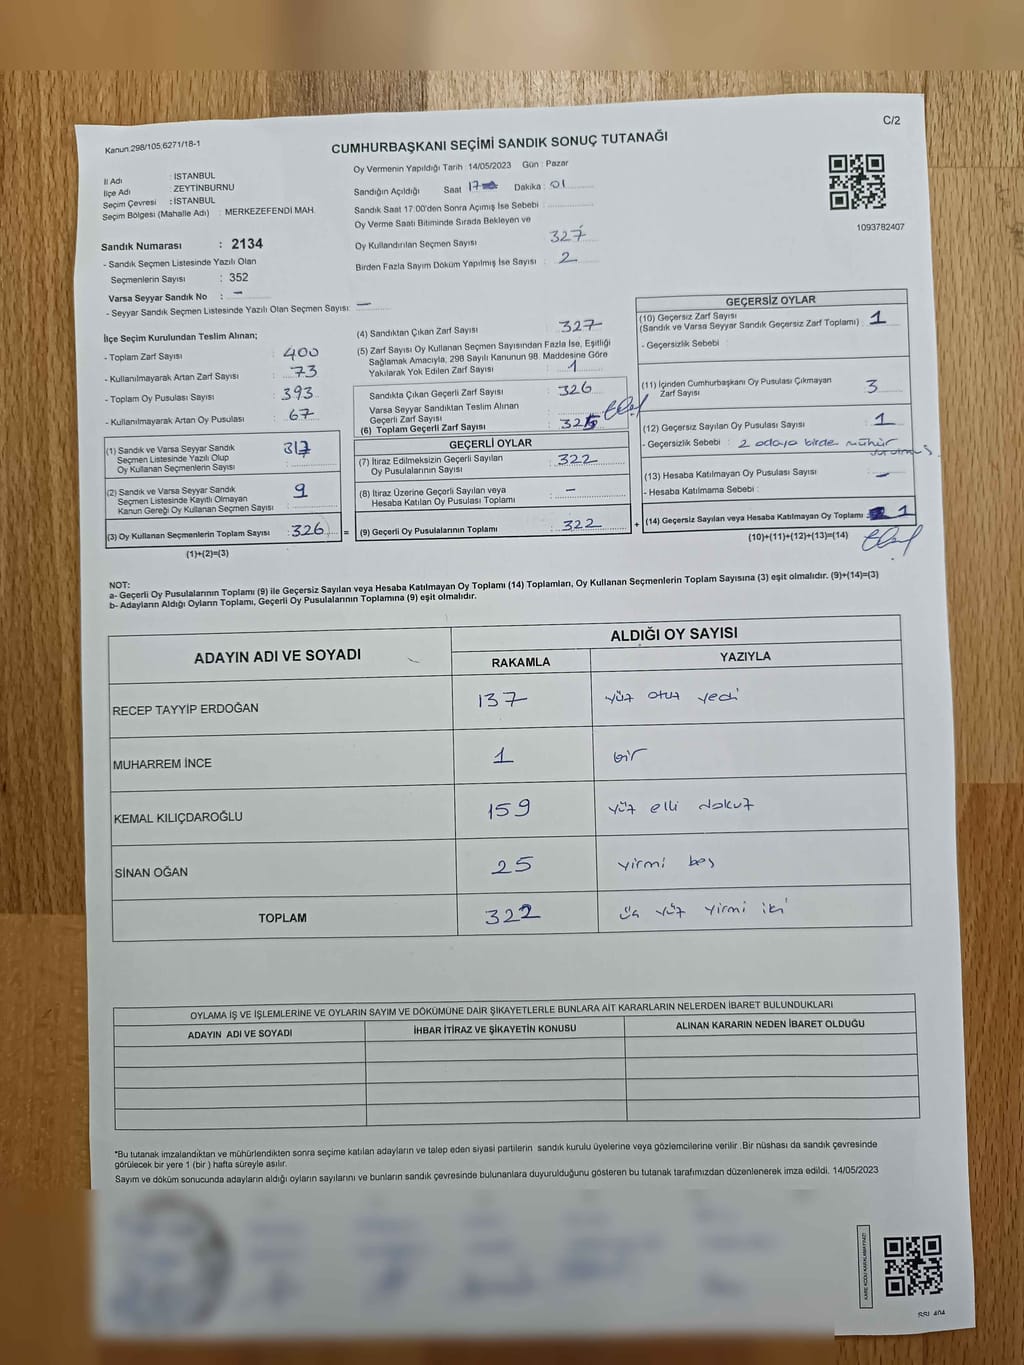 C/2
Kanun.298/105,6271/18-1
CUMHURBAŞKANI SEÇİMİ SANDIK SONUÇ TUTANAĞI
İl Adı : İSTANBUL
İlçe Adı : ZEYTİNBURNU
Seçim Çevresi : İSTANBUL
Seçim Bölgesi (Mahalle Adı) : MERKEZEFENDİ MAH.
Sandık Numarası : 2134
- Sandık Seçmen Listesinde Yazılı Olan
Seçmenlerin Sayısı : 352
Varsa Seyyar Sandık No : -
- Seyyar Sandık Seçmen Listesinde Yazılı Olan Seçmen Sayısı: -
Oy Vermenin Yapıldığı Tarih :14/05/2023 Gün : Pazar
Sandığın Açıldığı Saat 17 Dakika : 01
Sandık Saat 17:00'den Sonra Açımış İse Sebebi :
Oy Verme Saati Bitiminde Sırada Bekleyen ve
Oy Kullandırılan Seçmen Sayısı : 327
Birden Fazla Sayım Döküm Yapılmış İse Sayısı : 2
1093782407
İlçe Seçim Kurulundan Teslim Alınan;
- Toplam Zarf Sayısı : 400
- Kullanılmayarak Artan Zarf Sayısı : 73
- Toplam Oy Pusulası Sayısı : 393
- Kullanılmayarak Artan Oy Pusulası : 67
(1) Sandık ve Varsa Seyyar Sandık
Seçmen Listesinde Yazılı Olup
Oy Kullanan Seçmenlerin Sayısı : 317
(2) Sandık ve Varsa Seyyar Sandık
Seçmen Listesinde Kayıtlı Olmayan
Kanun Gereği Oy Kullanan Seçmen Sayısı : 9
(3) Oy Kullanan Seçmenlerin Toplam Sayısı : 326 =
(1)+(2)=(3)
(4) Sandıktan Çıkan Zarf Sayısı : 327
(5) Zarf Sayısı Oy Kullanan Seçmen Sayısından Fazla İse, Eşitliği
Sağlamak Amacıyla; 298 Sayılı Kanunun 98. Maddesine Göre
Yakılarak Yok Edilen Zarf Sayısı : 1
Sandıkta Çıkan Geçerli Zarf Sayısı : 326
Varsa Seyyar Sandıktan Teslim Alınan
Geçerli Zarf Sayısı :
(6) Toplam Geçerli Zarf Sayısı :
GEÇERLİ OYLAR
(7) İtiraz Edilmeksizin Geçerli Sayılan
Oy Pusulalarının Sayısı : 322
(8) İtiraz Üzerine Geçerli Sayılan veya
Hesaba Katılan Oy Pusulası Toplamı : -
(9) Geçerli Oy Pusulalarının Toplamı : 322 +
GEÇERSİZ OYLAR
(10) Geçersiz Zarf Sayısı : 1
(Sandık ve Varsa Seyyar Sandık Geçersiz Zarf Toplamı)
- Geçersizlik Sebebi :
(11) İçinden Cumhurbaşkanı Oy Pusulası Çıkmayan
Zarf Sayısı : 3
(12) Geçersiz Sayılan Oy Pusulası Sayısı : 1
- Geçersizlik Sebebi : 2 adaya birde mühür
(13) Hesaba Katılmayan Oy Pusulası Sayısı : -
- Hesaba Katılmama Sebebi :
(14) Geçersiz Sayılan veya Hesaba Katılmayan Oy Toplamı : 1
(10)+(11)+(12)+(13)=(14)
NOT:
a- Geçerli Oy Pusulalarının Toplamı (9) ile Geçersiz Sayılan veya Hesaba Katılmayan Oy Toplamı (14) Toplamları, Oy Kullanan Seçmenlerin Toplam Sayısına (3) eşit olmalıdır. (9)+(14)=(3)
b- Adayların Aldığı Oyların Toplamı, Geçerli Oy Pusulalarının Toplamına (9) eşit olmalıdır.
ADAYIN ADI VE SOYADI ALDIĞI OY SAYISI
RAKAMLA YAZIYLA
RECEP TAYYİP ERDOĞAN 137 yüz otuz yedi
MUHARREM İNCE 1 bir
KEMAL KILIÇDAROĞLU 159 yüz elli dokuz
SİNAN OĞAN 25 yirmi beş
TOPLAM 322 üç yüz yirmi iki
OYLAMA İŞ VE İŞLEMLERİNE VE OYLARIN SAYIM VE DÖKÜMÜNE DAİR ŞİKAYETLERLE BUNLARA AİT KARARLARIN NELERDEN İBARET BULUNDUKLARI
ADAYIN ADI VE SOYADI İHBAR İTİRAZ VE ŞİKAYETİN KONUSU ALINAN KARARIN NEDEN İBARET OLDUĞU
*Bu tutanak imzalandıktan ve mühürlendikten sonra seçime katılan adayların ve talep eden siyasi partilerin sandık kurulu üyelerine veya gözlemcilerine verilir .Bir nüshası da sandık çevresinde
görülecek bir yere 1 (bir ) hafta süreyle asılır.
Sayım ve döküm sonucunda adayların aldığı oyların sayılarını ve bunların sandık çevresinde bulunanlara duyurulduğunu gösteren bu tutanak tarafımızdan düzenlenerek imza edildi. 14/05/2023